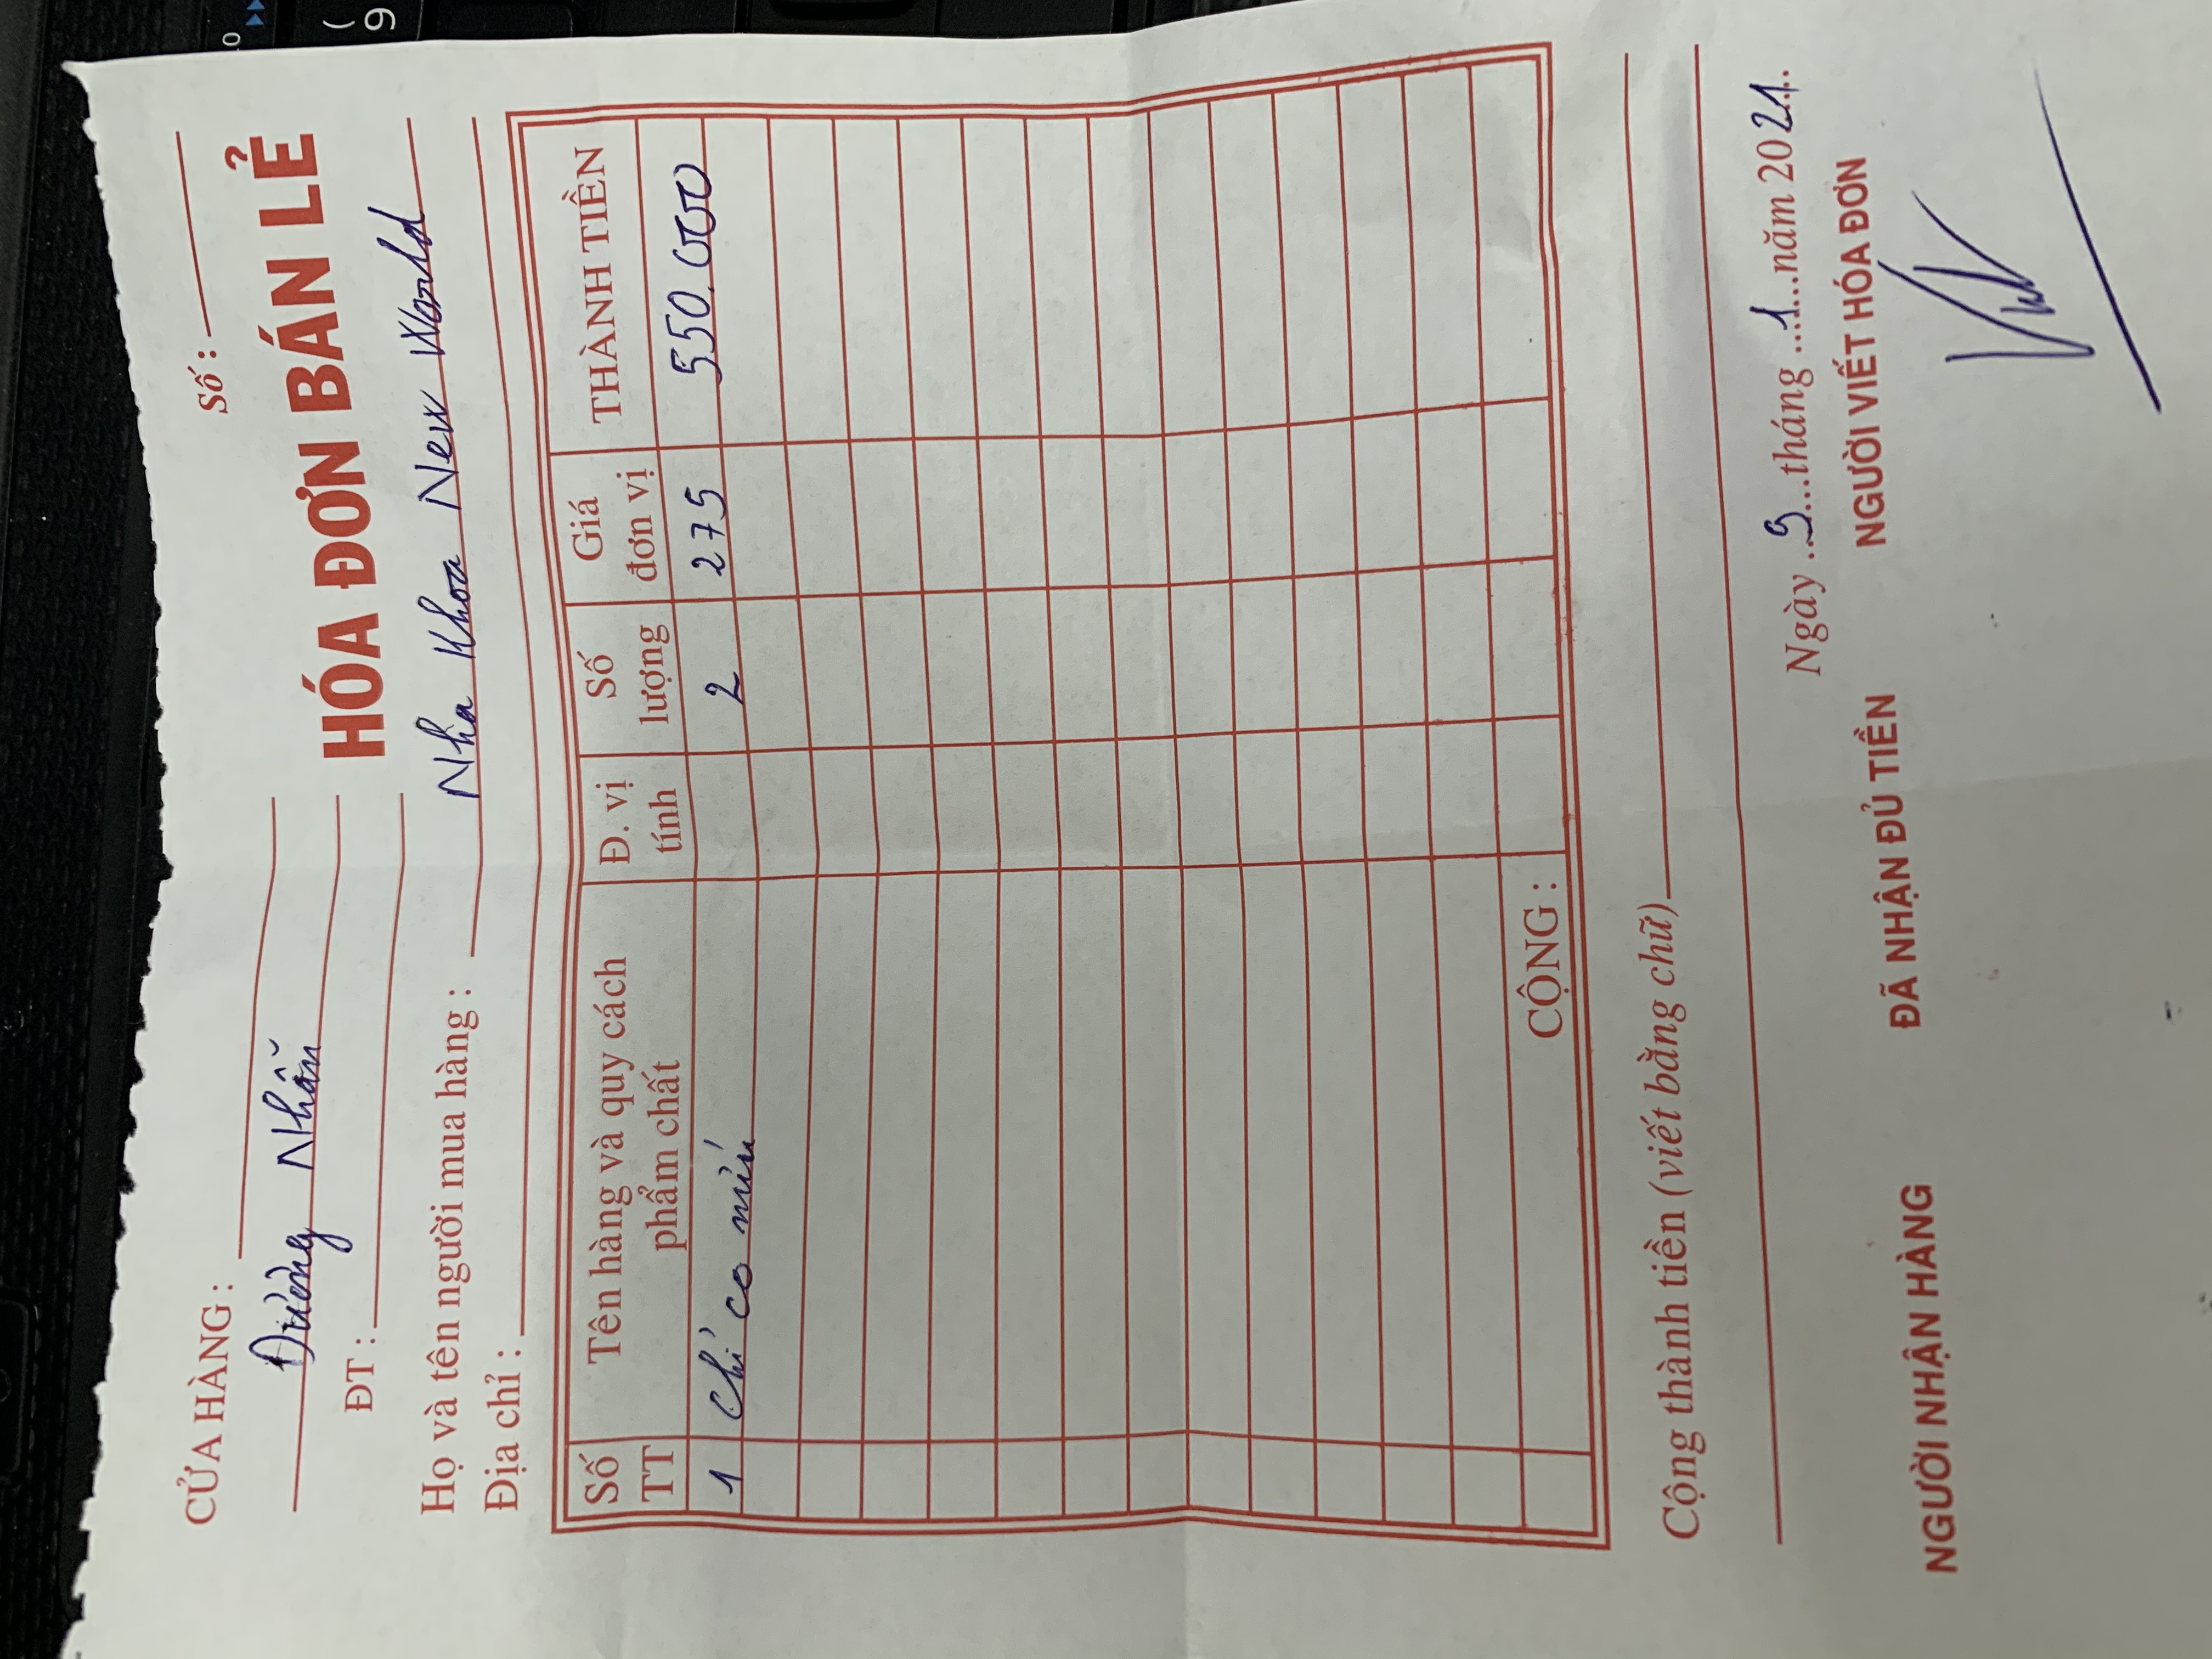 CỬA HÀNG :
Số :
Đường Nhẫn
HÓA ĐƠN BÁN LẺ
ĐT :
Họ và tên người mua hàng : Nha Khoa New World
Địa chỉ :
Số TT Tên hàng và quy cách phẩm chất Đ. vị tính Số lượng Giá đơn vị THÀNH TIỀN
1 chỉ co nướu 2 275 550.000
CỘNG :
Cộng thành tiền (viết bằng chữ)
Ngày 9 tháng 1 năm 2021
NGƯỜI NHẬN HÀNG ĐÃ NHẬN ĐỦ TIỀN NGƯỜI VIẾT HÓA ĐƠN